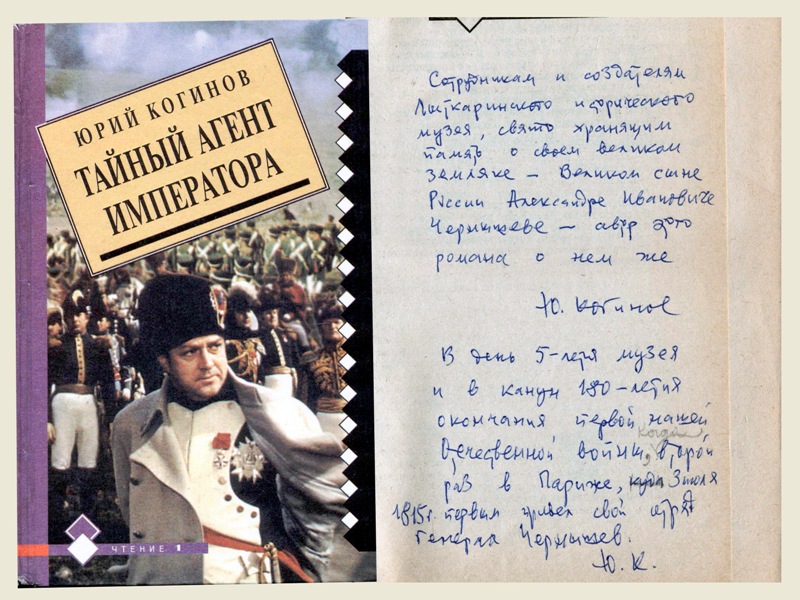 ЮРИЙ КОГИНОВ
ТАЙНЫЙ АГЕНТ
ИМПЕРАТОРА
ЧТЕНИЕ 1
Сотрудникам и создателям
Лыткаринского исторического
музея, свято хранящим
память о своем великом
земляке – Великом сыне
России Александре Ивановиче
Чернышеве – автор этого
романа о нем же
Ю. Когинов
В день 5-летия музея
и в канун 180-летия
окончания первой нашей
Отечественной войны, второй
раз в Париже, куда когда 3 июля
1815 г. первым привел свой отряд
генерал Чернышев.
Ю. К.